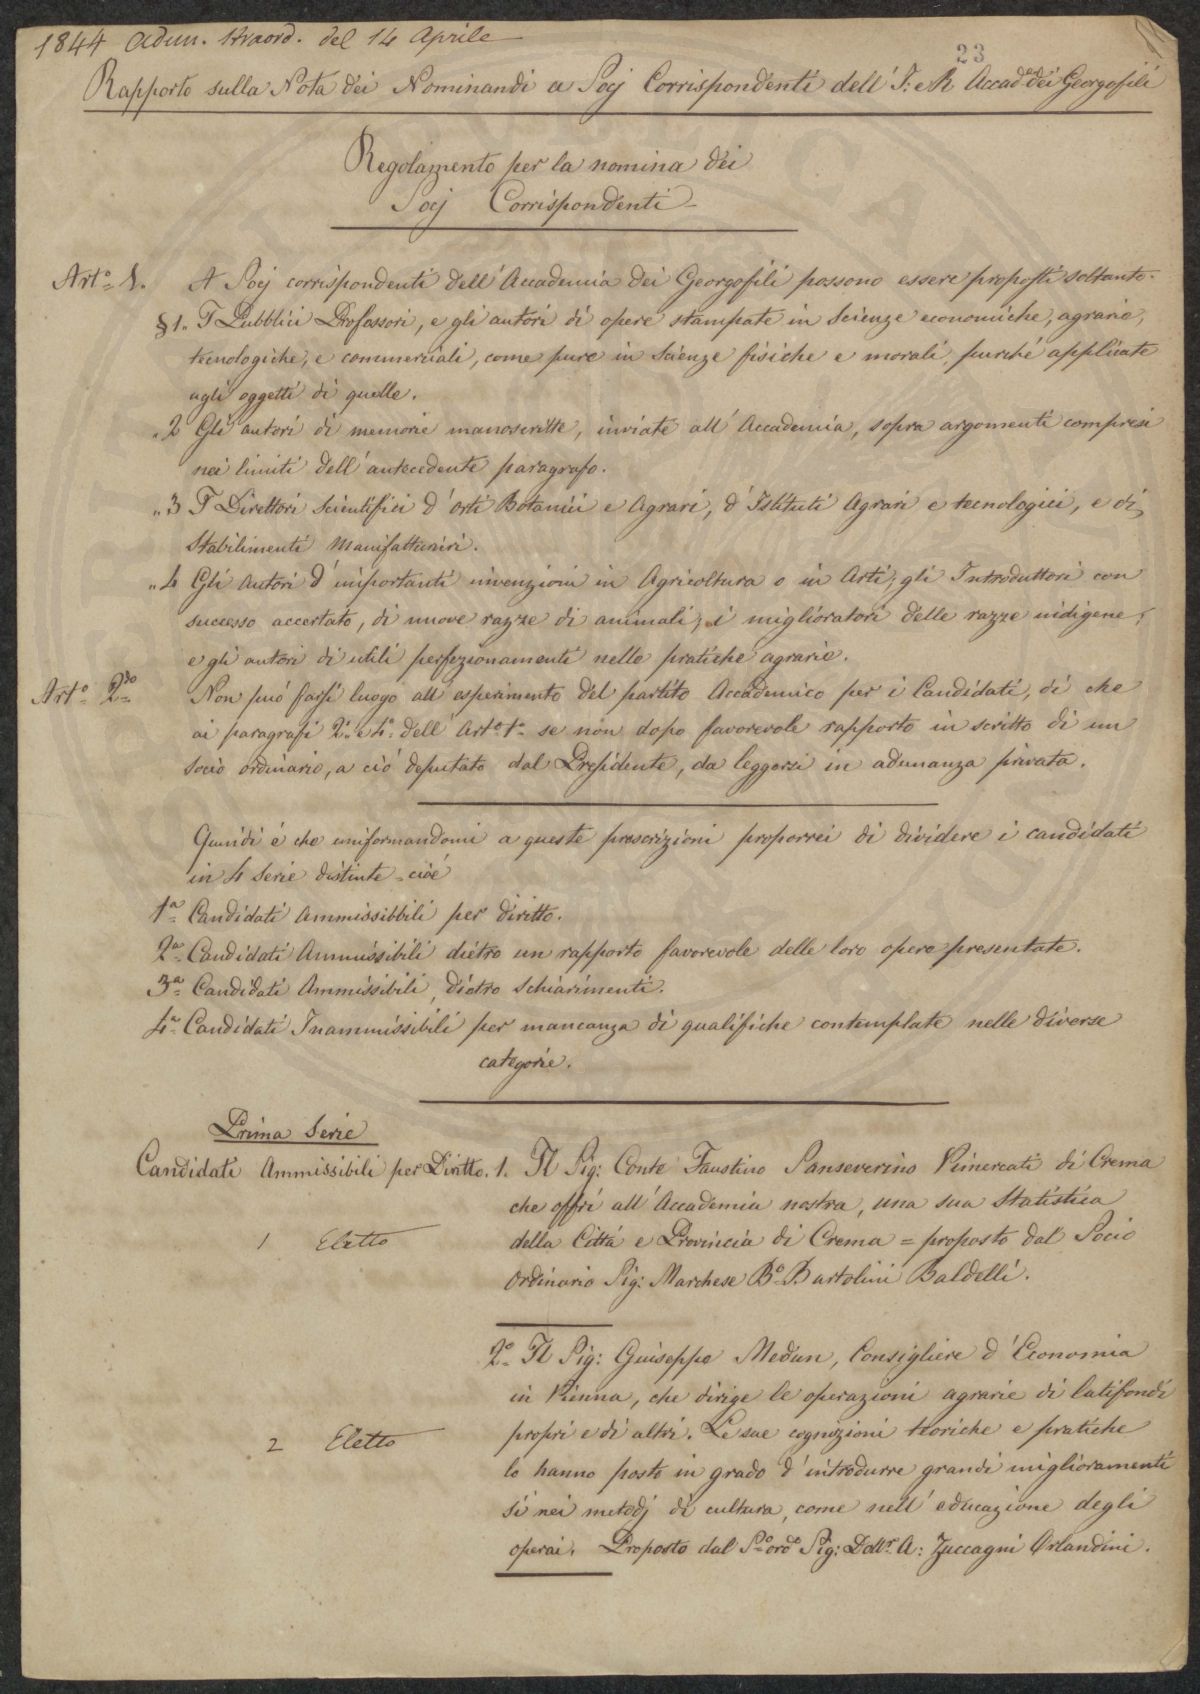 1844 Adun. straord. del 14 Aprile
23
Rapporto sulla Nota dei Nominandi a Socj Corrispondenti dell' I: e R Accad. dei Georgofili
Regolamento per la nomina dei
Socj Corrispondenti
Art.o 1. A Socj corrispondenti dell'Accademia dei Georgofili possono essere proposti soltanto.
§ 1. I Pubblici Professori, e gli autori di opere stampate in Scienze economiche, agrarie,
tecnologiche, e commerciali, come pure in Scienze fisiche e morali, purché applicate
agli oggetti di quelle.
„ 2 Gli autori di memorie manoscritte, inviate all' Accademia, sopra argomenti compresi
nei limiti dell'antecedente paragrafo.
„ 3 I Direttori Scientifici d' orti Botanici e Agrari, d' Istituti Agrari e tecnologici, e di
Stabilimenti Manifatturieri.
„ 4 Gli Autori d'importanti invenzioni in Agricoltura o in Arti, gli Introduttori con
successo accertato, di nuove razze di animali, i miglioratori delle razze indigene,
e gli autori di utili perfezionamenti nelle pratiche agrarie.
Art.o 2.do Non può farsi luogo all esperimento del partito Accademico per i Candidati, di che
ai paragrafi 2.o e 4.o dell' Art.o 1.o se non dopo favorevole rapporto in scritto di un
socio ordinario, a ciò deputato dal Presidente, da leggersi in adunanza privata.
Quindi è che uniformandomi a queste prescrizioni proporrei di dividere i candidati
in 4 Serie distinte = cioè
1.a Candidati Ammissibbili per diritto.
2.a Candidati Ammissibili dietro un rapporto favorevole delle loro opere presentate.
3.a Candidati Ammissibili, dietro Schiarimenti.
4.a Candidati Inammissibili per mancanza di qualifiche contemplate nelle diverse
categorie.
Prima Serie
Candidati Ammissibili per Diritto. 1. Il Sig: Conte Faustino Sanseverino Vimercati di Crema
che offrì all'Accademia nostra, una sua Statistica
1 Eletto della Città e Provincia di Crema = proposto dal Socio
Ordinario Sig: Marchese B.o Bartolini Baldelli.
2.o Il Sig: Guiseppe Medun, Consigliere d'Economia
in Vienna, che dirige le operazioni agrarie di latifondi
2 Eletto propri e di altri. Le sue cognizioni teoriche e pratiche
lo hanno posto in grado d'introdurre grandi miglioramenti
sì nei metodj di cultura, come nell' educazione degli
operai. Proposto dal S.o ord.o Sig: Dott.r A: Zuccagni Orlandini.